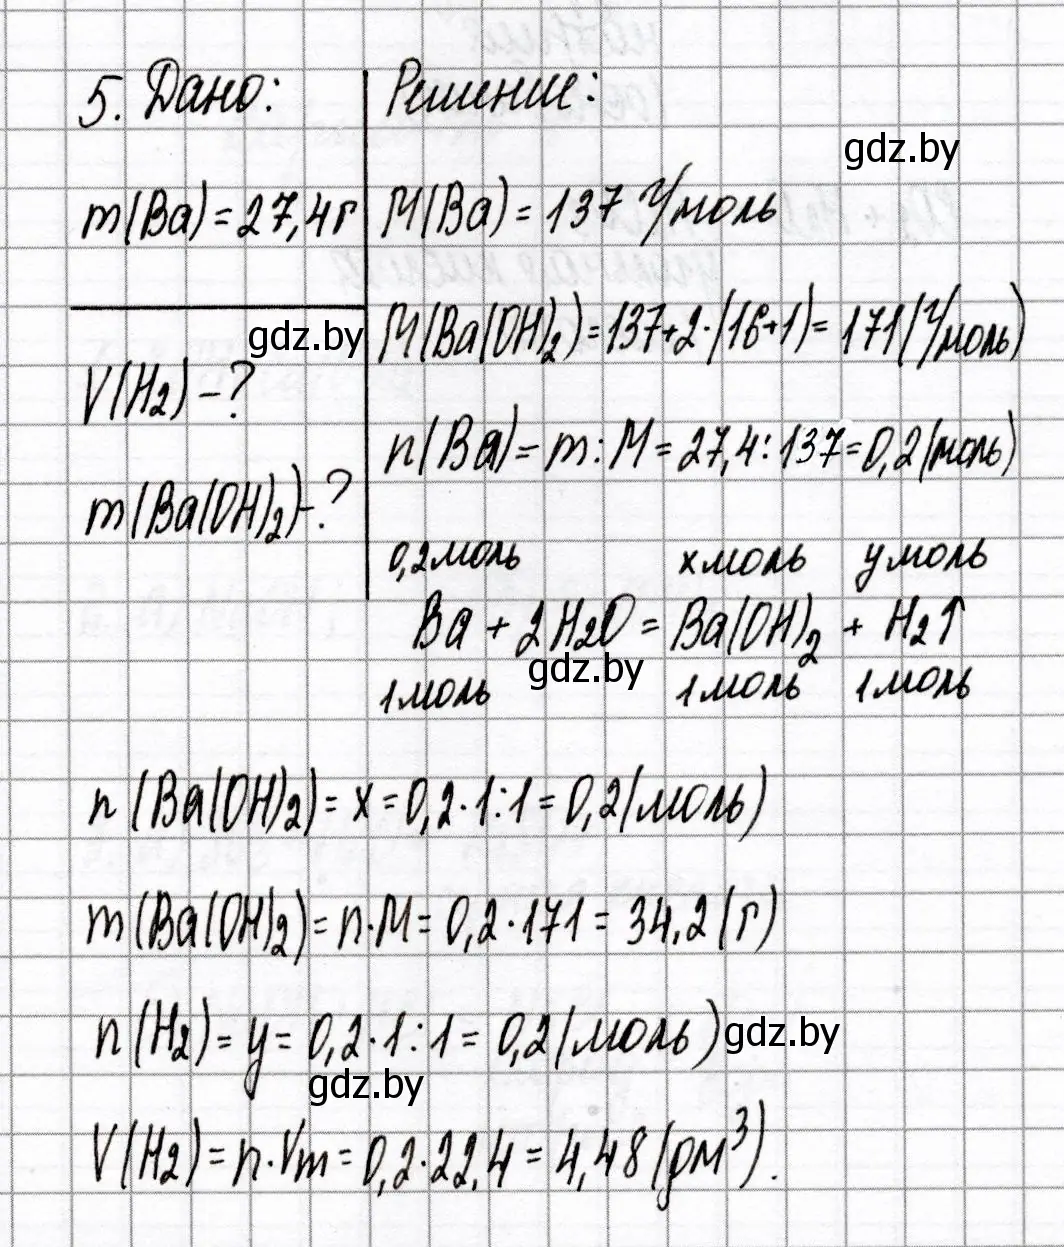 5. Дано:
m(Ba) = 27,4г
V(H₂) – ?
m(Ba(OH)₂) – ?
Решение:
gdz.by
M(Ba) = 137 г/моль
gdz.by
M(Ba(OH)₂) = 137+2·(16+1) = 171 (г/моль)
n(Ba) = m : M = 27,4 : 137 = 0,2 (моль)
0,2моль xмоль yмоль
Ba + 2H₂O = Ba(OH)₂ + H₂↑
gdz.by
1моль 1моль 1моль
n(Ba(OH)₂) = x = 0,2·1:1 = 0,2(моль)
m(Ba(OH)₂) = n·M = 0,2·171 = 34,2 (г)
n(H₂) = y = 0,2·1:1 = 0,2(моль)
gdz.by
gdz.by
V(H₂) = n·Vm = 0,2·22,4 = 4,48 (дм³).